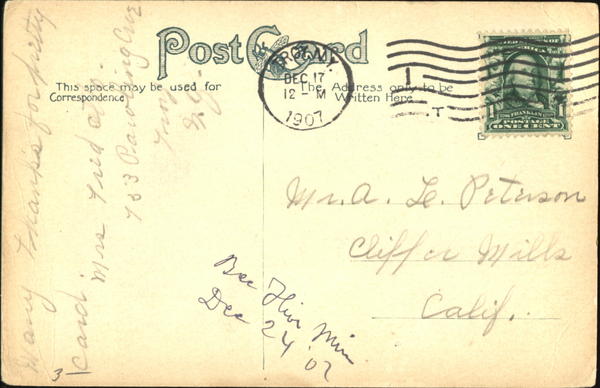 Post Card
This space may be used for
Correspondence
The Address only to be
Written Here
TROY, N.Y.
DEC 17
12 - M
1907
1
T
FRANKLIN
POSTAGE
ONE CENT
Many thanks for pretty
Card. Mrs Fred
783 Pawling Ave
Troy
N.Y.
Mr. A. Le. Peterson
Cliffer Mills
Calif.
Bee Hive Min
Dec 24 '07
3-